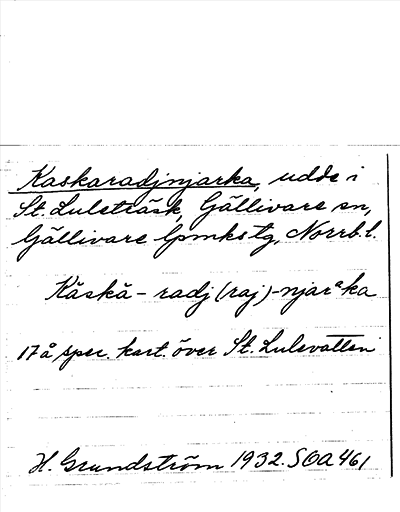 Kaskaradjnjarka, udde i
St. Luleträsk, Gällivare sn,
Gällivare lpmkstg, Norrb. l.
Kåskå- radj (raj)-njarᵃka
17 å, spec. kart. över St. Lulevatten
H. Grundström 1932. SOA 461